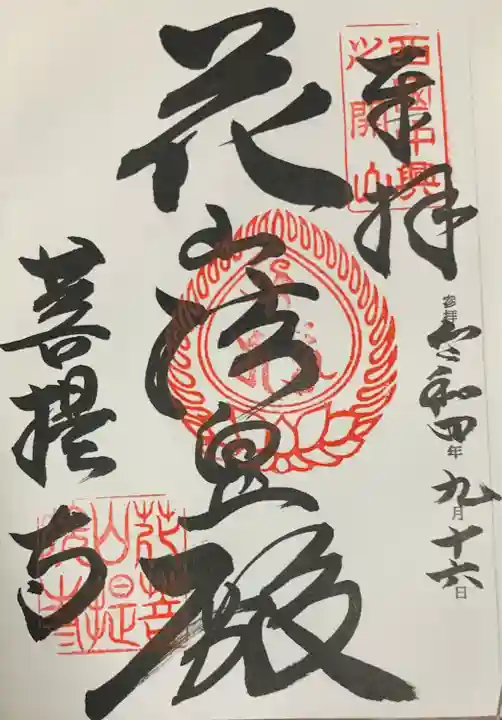 奉拝
西國中興
之開山
参拝 令和四年九月十六日
花山法皇殿
菩提寺
花山院菩提寺